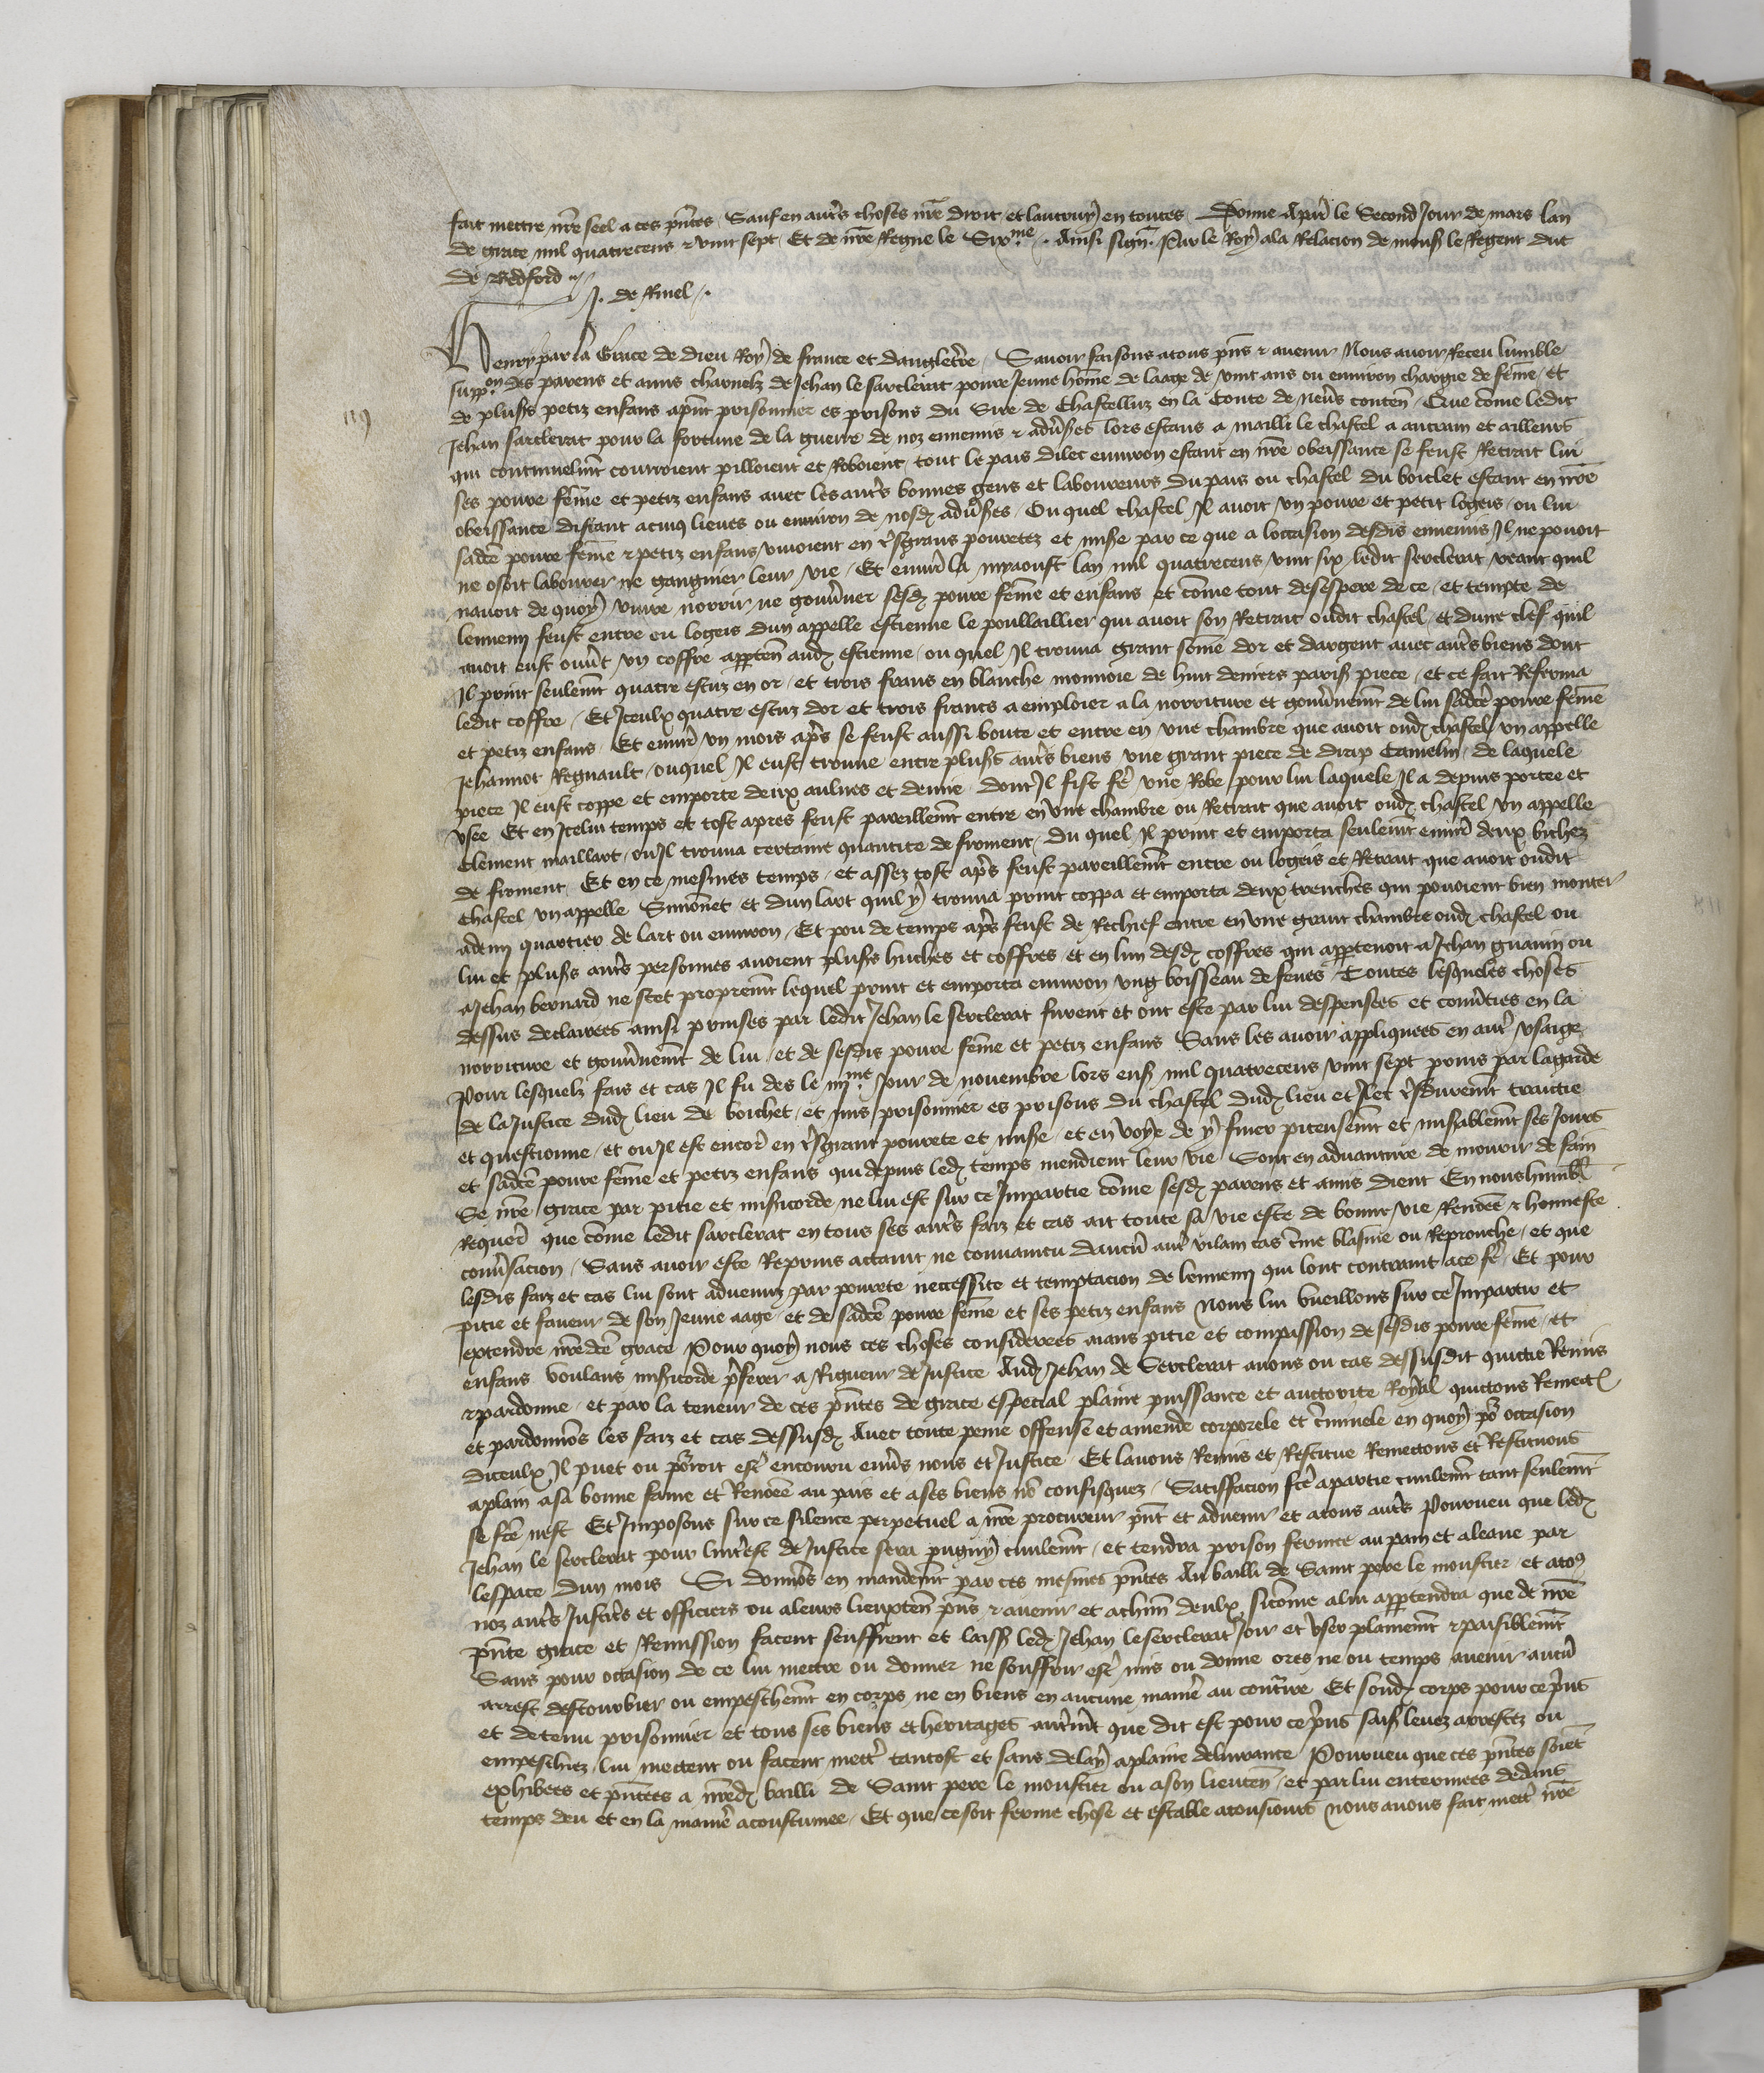 fait mettre nre seel a ces pntes Sauf en autrs choses nre droit et lautruy en toutes Donne A pns le Second Jour de mars lan
de grace mil quatrecens & vint sept Et de nre Regne le Sixme. Ainsi signe. Par le Roy a la Relacion de mons le Regent duc
de Bedford
J. de Rinel.
Henry par la Grace de dieu Roy de france et dangleterre Savoir faisons a tous pns & avenir Nous avoir Receu lumble
supplion des parens et amis charnelz de Jehan le sarclerat povre Jeune homme de laage de vint ans ou environ chargie de feme et
de plusrs petiz enfans apnt prisonnier es prisons du Sire de Chastelluz en la Conte de nevrs conten Que come ledit
Jehan sarclerat pour la fortune de la guerre de noz ennemis & advrses lors estans a mailli le chastel a autrain et ailleurs
qui continuelmt couroient pilloient et Roboient tout le pais dilec environ estant en nre obeissance se feust Retrait lui
ses povre feme et petiz enfans avec les autrs bonnes gens et laboureurs du pais ou chastel du boichet estant en nre
obeissance distant a cinq lieues ou environ de nosd advrses Ou quel chastel Il avoit un povre et petit logeis ou lui
sadte povre feme & petiz enfans vivoient en trsgrans povretez et mise par ce que a loccasion desdis ennemis Il ne povoit
ne osoit labourer ne gangnier leur vie Et envir la myaoust lan mil quatrecens vint six ledit serclerat veant quil
navoit de quoy vivre norrir ne gouvner sesd povre feme et enfans et come tout desespere de ce et tempte de
lennemi feust entre en logeis dun appelle estienne le poullaillier qui avoit son Retrait oudit chastel et dune clef quil
avoit eust ouvrt un coffre apparten aud estienne ou quel Il trouva grant some dor et dargent avec autrs biens dont
Il print seulemt quatre escuz en or et trois frans en blanche monnoie de huit deniers paris piece et ce fait Referma
ledit coffre Et Iceulx quatre escuz dor et trois francs a emploier a la norriture et gouvnemt de lui sadte povre feme
et petiz enfans Et envir un mois aprs se feust aussi boute et entre en une chambre que avoit oud chastel un appelle
Jehannot Regnault ouquel Il eust trouve entre plusrs autrs biens une grant piece de drap Camelin de laquele
piece Il eust coppe et emporte deux aulnes et demie dont Il fist fe une Robe pour lui laquele Il a depuis portee et
usee Et en Icelui temps et tost apres feust pareillemt entre en une chambre ou Retrait que avoit oud chastel un appelle
Clement maillart ou Il trouva certaine quantite de froment du quel Il print et emporta seulemt envir deux bichez
de froment Et en ce mesmes temps et assez tost aprs feust pareillemt entre ou logeis et Retrait que avoit oudit
chastel un appelle Simonnet et dun lart quil y trouva print coppa et emporta deux trenches qui povoient bien monter
a demi quartier de lart ou environ Et pou de temps aprs feust de Rechief entre en une grant chambre oud chastel ou
lui et plusrs autrs personnes avoient plusrs huches et coffres et en lun desd coffres qui appartenoit a Jehan guanin ou
a Jehan bernard ne scet propremt lequel print et emporta environ ung boisseau de feves Toutes lesqueles choses
dessus declairees ainsi prinses par ledit Jehan le serclerat furent et ont este par lui despensees et convrties en la
norriture et gouvnemt de lui et de sesdis povre feme et petiz enfans Sans les avoir appliquees en autr usaige
Pour lesquelz fais et cas Il fu des le iiijme Jour de novembre lors ens mil quatrecens vint sept prins par la garde
de la Justice dud lieu de boichet et mis prisonnier es prisons du chastel dud lieu et Ilec trsduremt traictie
et questionne et ou Il est encor en trsgrant povrete et mise et en voye de y finer piteusemt et misablemt ses Jours
et sadte povre feme et petiz enfans qui depuis led temps mendient leur vie Sont en advanture de mourir de faim
Se nre grace par pitie et misricorde ne lui est sur ce Impartie come sesd parens et amis dient En nous humbl
Requert que come ledit sarclerat en tous ses autrs faiz et cas ait toute sa vie este de bonne vie Renoe & honneste
convrsacion Sans avoir este Reprins actaint ne convaincu daucun autr vilain cas crime blasme ou Reprouche et que
lesdis faiz et cas lui sont advenuz par povrete neccessite et temptacion de lennemi qui lont contraint a ce fe Et pour
pitie et faveur de son Jeune aage et de sadte povre feme et ses petiz enfans Nous lui vueillons sur ce Impartir et
extendre nredte grace Pour quoy nous ces choses considerees aians pitie et compassion de sesdis povre feme et
enfans Voulans misricorde prferer a Rigueur de Justice Aud Jehan de Serclerat avons ou cas dessusdit quictie Remis
& pardonne et par la teneur de ces pntes de grace especial plaine puissance et auctorite Royal quictons Remect
et pardonnons les faiz et cas dessusd Avec toute peine offense et amende corporele et criminele en quoy pour occasion
diceulx Il puet ou pourroit estr encouru envrs nous et Justice Et lavons Remis et Restitue Remectons et Restituons
a plain a sa bonne fame et Renoee au pais et a ses biens no confisquez Satisffacion fte a partie civilemt tant seulemt
se fte nest Et Imposons sur ce silence perpetuel a nre procureur pnt et advenir et a tous autrs Pourveu que led
Jehan le serclerat pour lintrest de Justice sera pugny civilemt et tendra prison fermee au pain et a leaue par
lespace dun mois Si donnons en mandemt par ces mesmes pntes Au bailli de Saint pere le moustier et a tous
noz autrs Justicrs et officiers ou a leurs lieuxten pns & avenir et a chun deulx si come a lui appartendra que de nre
pnte grace et Remission facent seuffrent et laiss led Jehan le serclerat Joir et user plainemt & paisiblemt
Sans pour occasion de ce lui mectre ou donner ne souffrir estr mis ou donne ores ne ou temps avenir aucun
arrest destourbier ou empeschemt en corps ne en biens en aucune manie au contraire Et sond corps pour ce prins
et detenu prisonnier et tous ses biens et heritages autrmt que dit est pour ce prins saisi levez arrestez ou
empeschiez lui mectent ou facent mettr tantost et sans delay a plaine delivrance Pourveu que ces pntes soiet
exhibees et pntees a nred bailli de Saint pere le moustier ou a son lieuten et par lui enterinees dedans
temps deu et en la manie acoustumee Et que ce soit ferme chose et estable a tousjours nous avons fait mettr nre
119